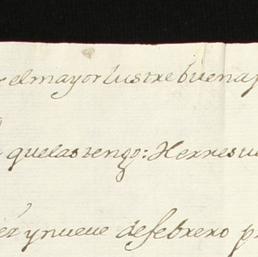 el mayor lustre buena
que las tengo: Herresu
ynueve de febrero p